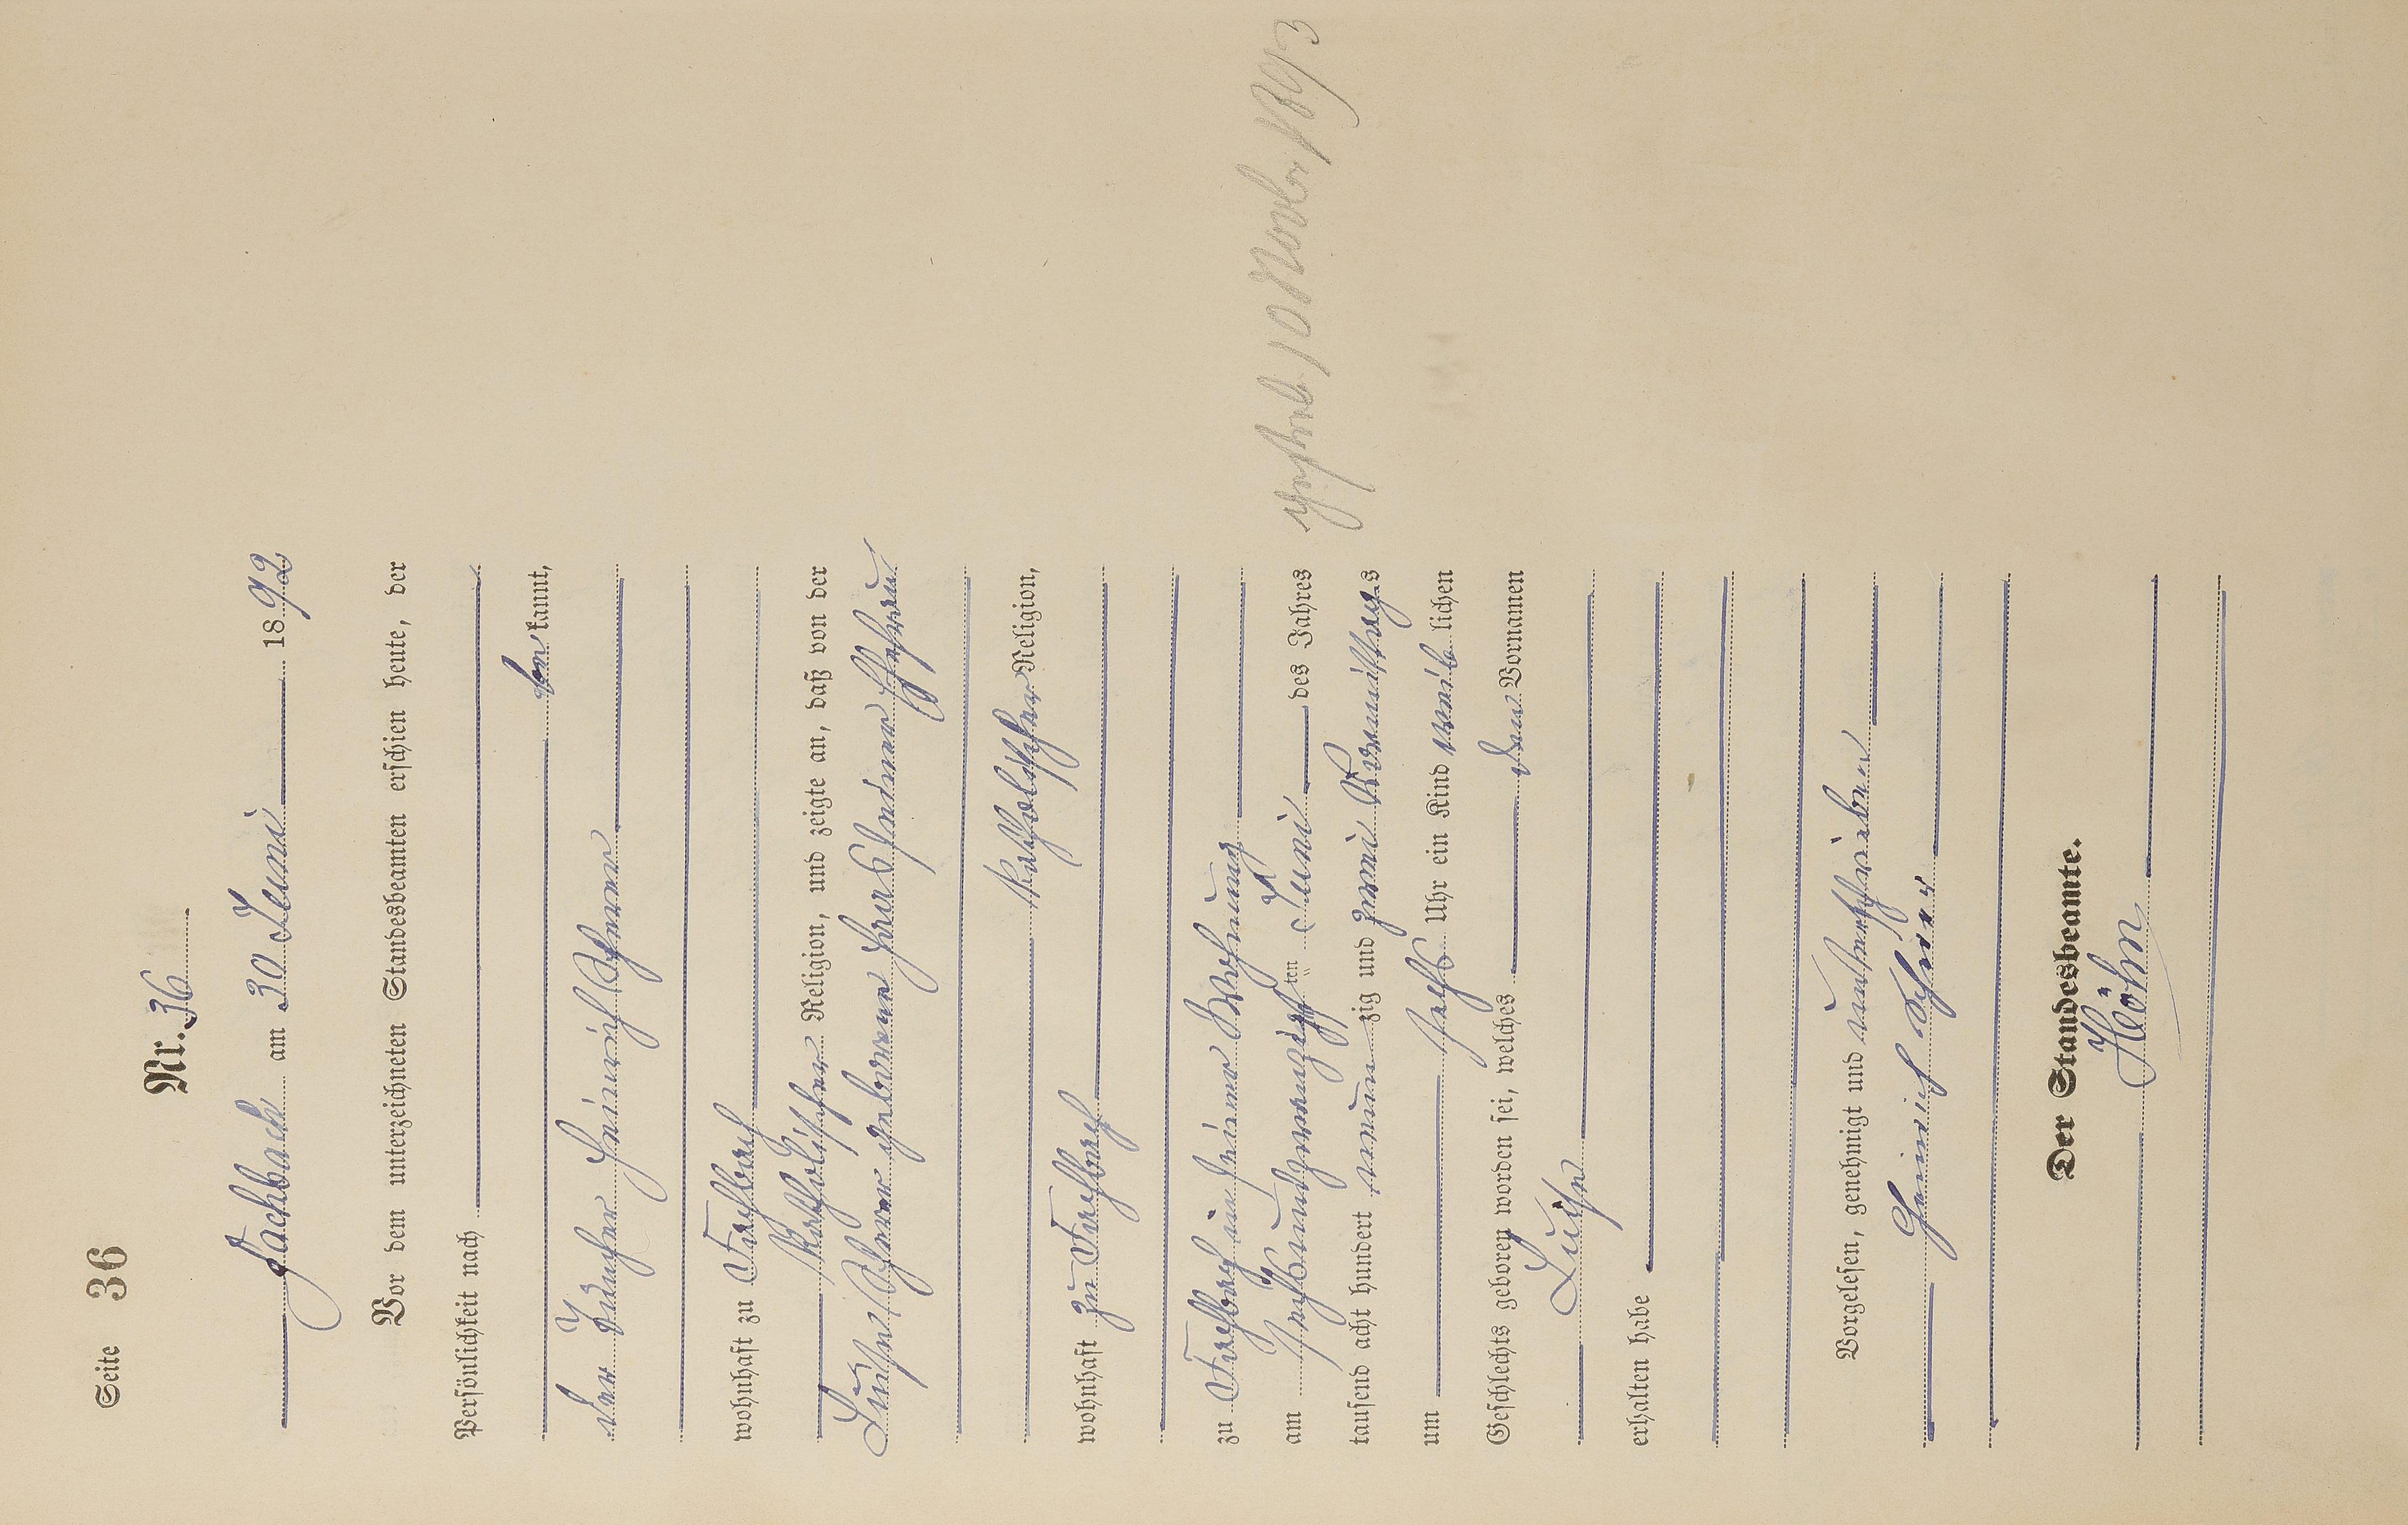 Seite 36
Nr. 36
Fachbach am 30 Juni 1892
Vor dem unterzeichneten Standesbeamten erschien heute, der
Persönlichkeit nach
be kannt,
der Heinrich Scherer
wohnhaft zu Fachbach
katholischer Religion, und zeigte an, daß von der
Luise Scherer geborene seiner Ehefrau
katholischer Religion,
wohnhaft zu Fachbach
zu Fachbach in seiner Wohnung
am sechsundzwanzigsten Juni des Jahres
tausend acht hundert neun zig und zwei Vormittags
um sechs Uhr ein Kind weib lichen
Geschlechts geboren worden sei, welches den Vornamen
Luise
erhalten habe
Vorgelesen, genehmigt und unterschrieben
Heinrich Scherer
Der Standesbeamte.
Höhn
10 Novbr 1893